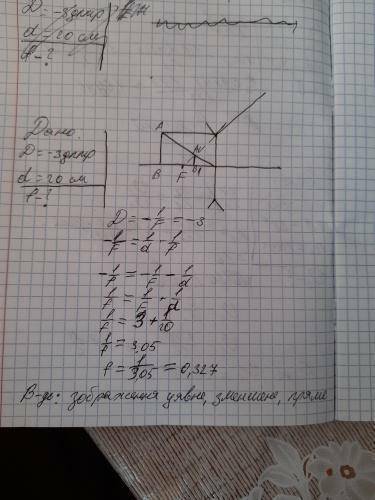 D = -3дптр
d = 20 см
f - ?
Дано:
D = -3дптр
d = 20 см
f - ?
A
B
F
D = -1/F = -3
-1/F = 1/d - 1/f
-1/f = -1/F - 1/d
1/f = 1/F + 1/d
1/f = 3 + 1/20
1/f = 3,05
f = 1/3,05 = 0,327
В-дь: зображення уявне, зменшене, пряме